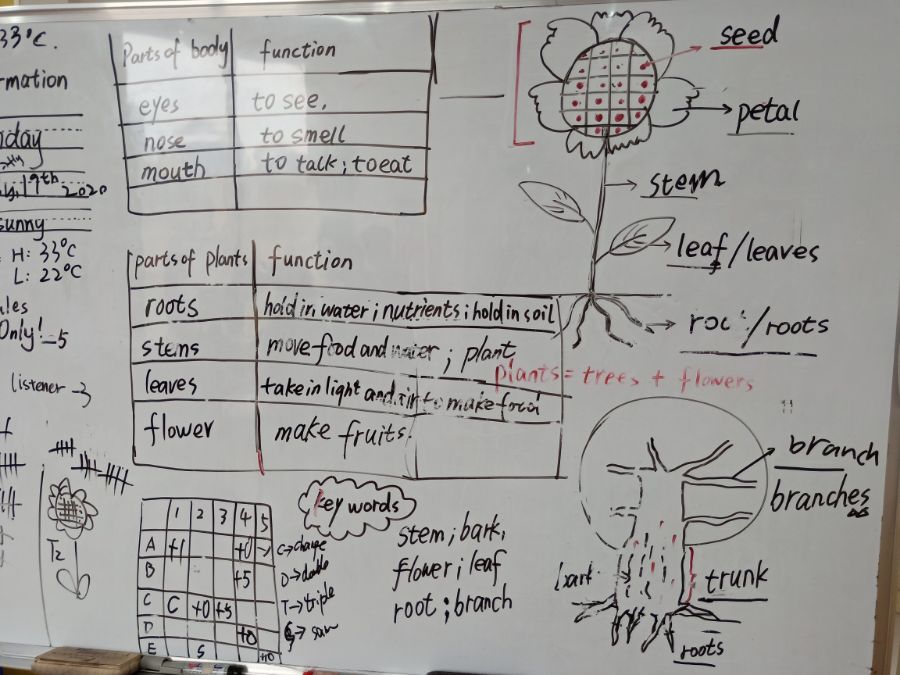 33°C.
mation
day
19th 2020
sunny
H: 33°C
L: 22°C
ules
Only! -5
listener -3
Parts of body function
eyes to see,
nose to smell
mouth to talk; to eat
parts of plants function
roots hold in water; nutrients; hold in soil
stems move food and water; plant
leaves take in light and air to make food
flower make fruits.
seed
petal
stem
leaf/leaves
roo /roots
plants = trees + flowers
branch
branches
bark
trunk
roots
key words
stem; bark,
flower; leaf
root; branch
1 2 3 4 5
A +1 +0
B +5
C C +0 +5
D +0
E S +0
C→change
D→double
T→triple
S→save
T2